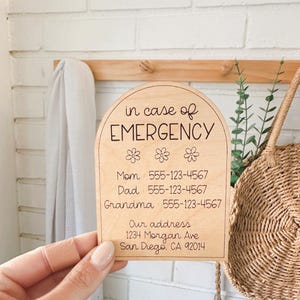 in case of
EMERGENCY
Mom 555-123-4567
Dad 555-123-4567
Grandma 555-123-4567
Our address
1234 Morgan Ave
San Diego, CA 92014